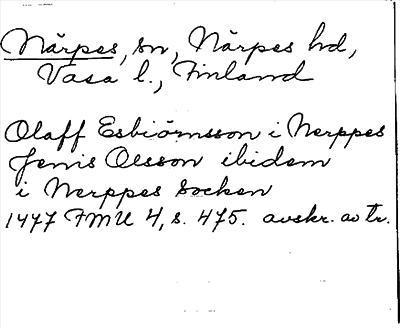 Närpes, sn, Närpes hd,
Vasa l., Finland
Olaff Esbiörnsson i Nerppes
Jenis Olsson ibidem
i Nerppes socken
1477 FMU 4, s. 475. avskr. av tr.